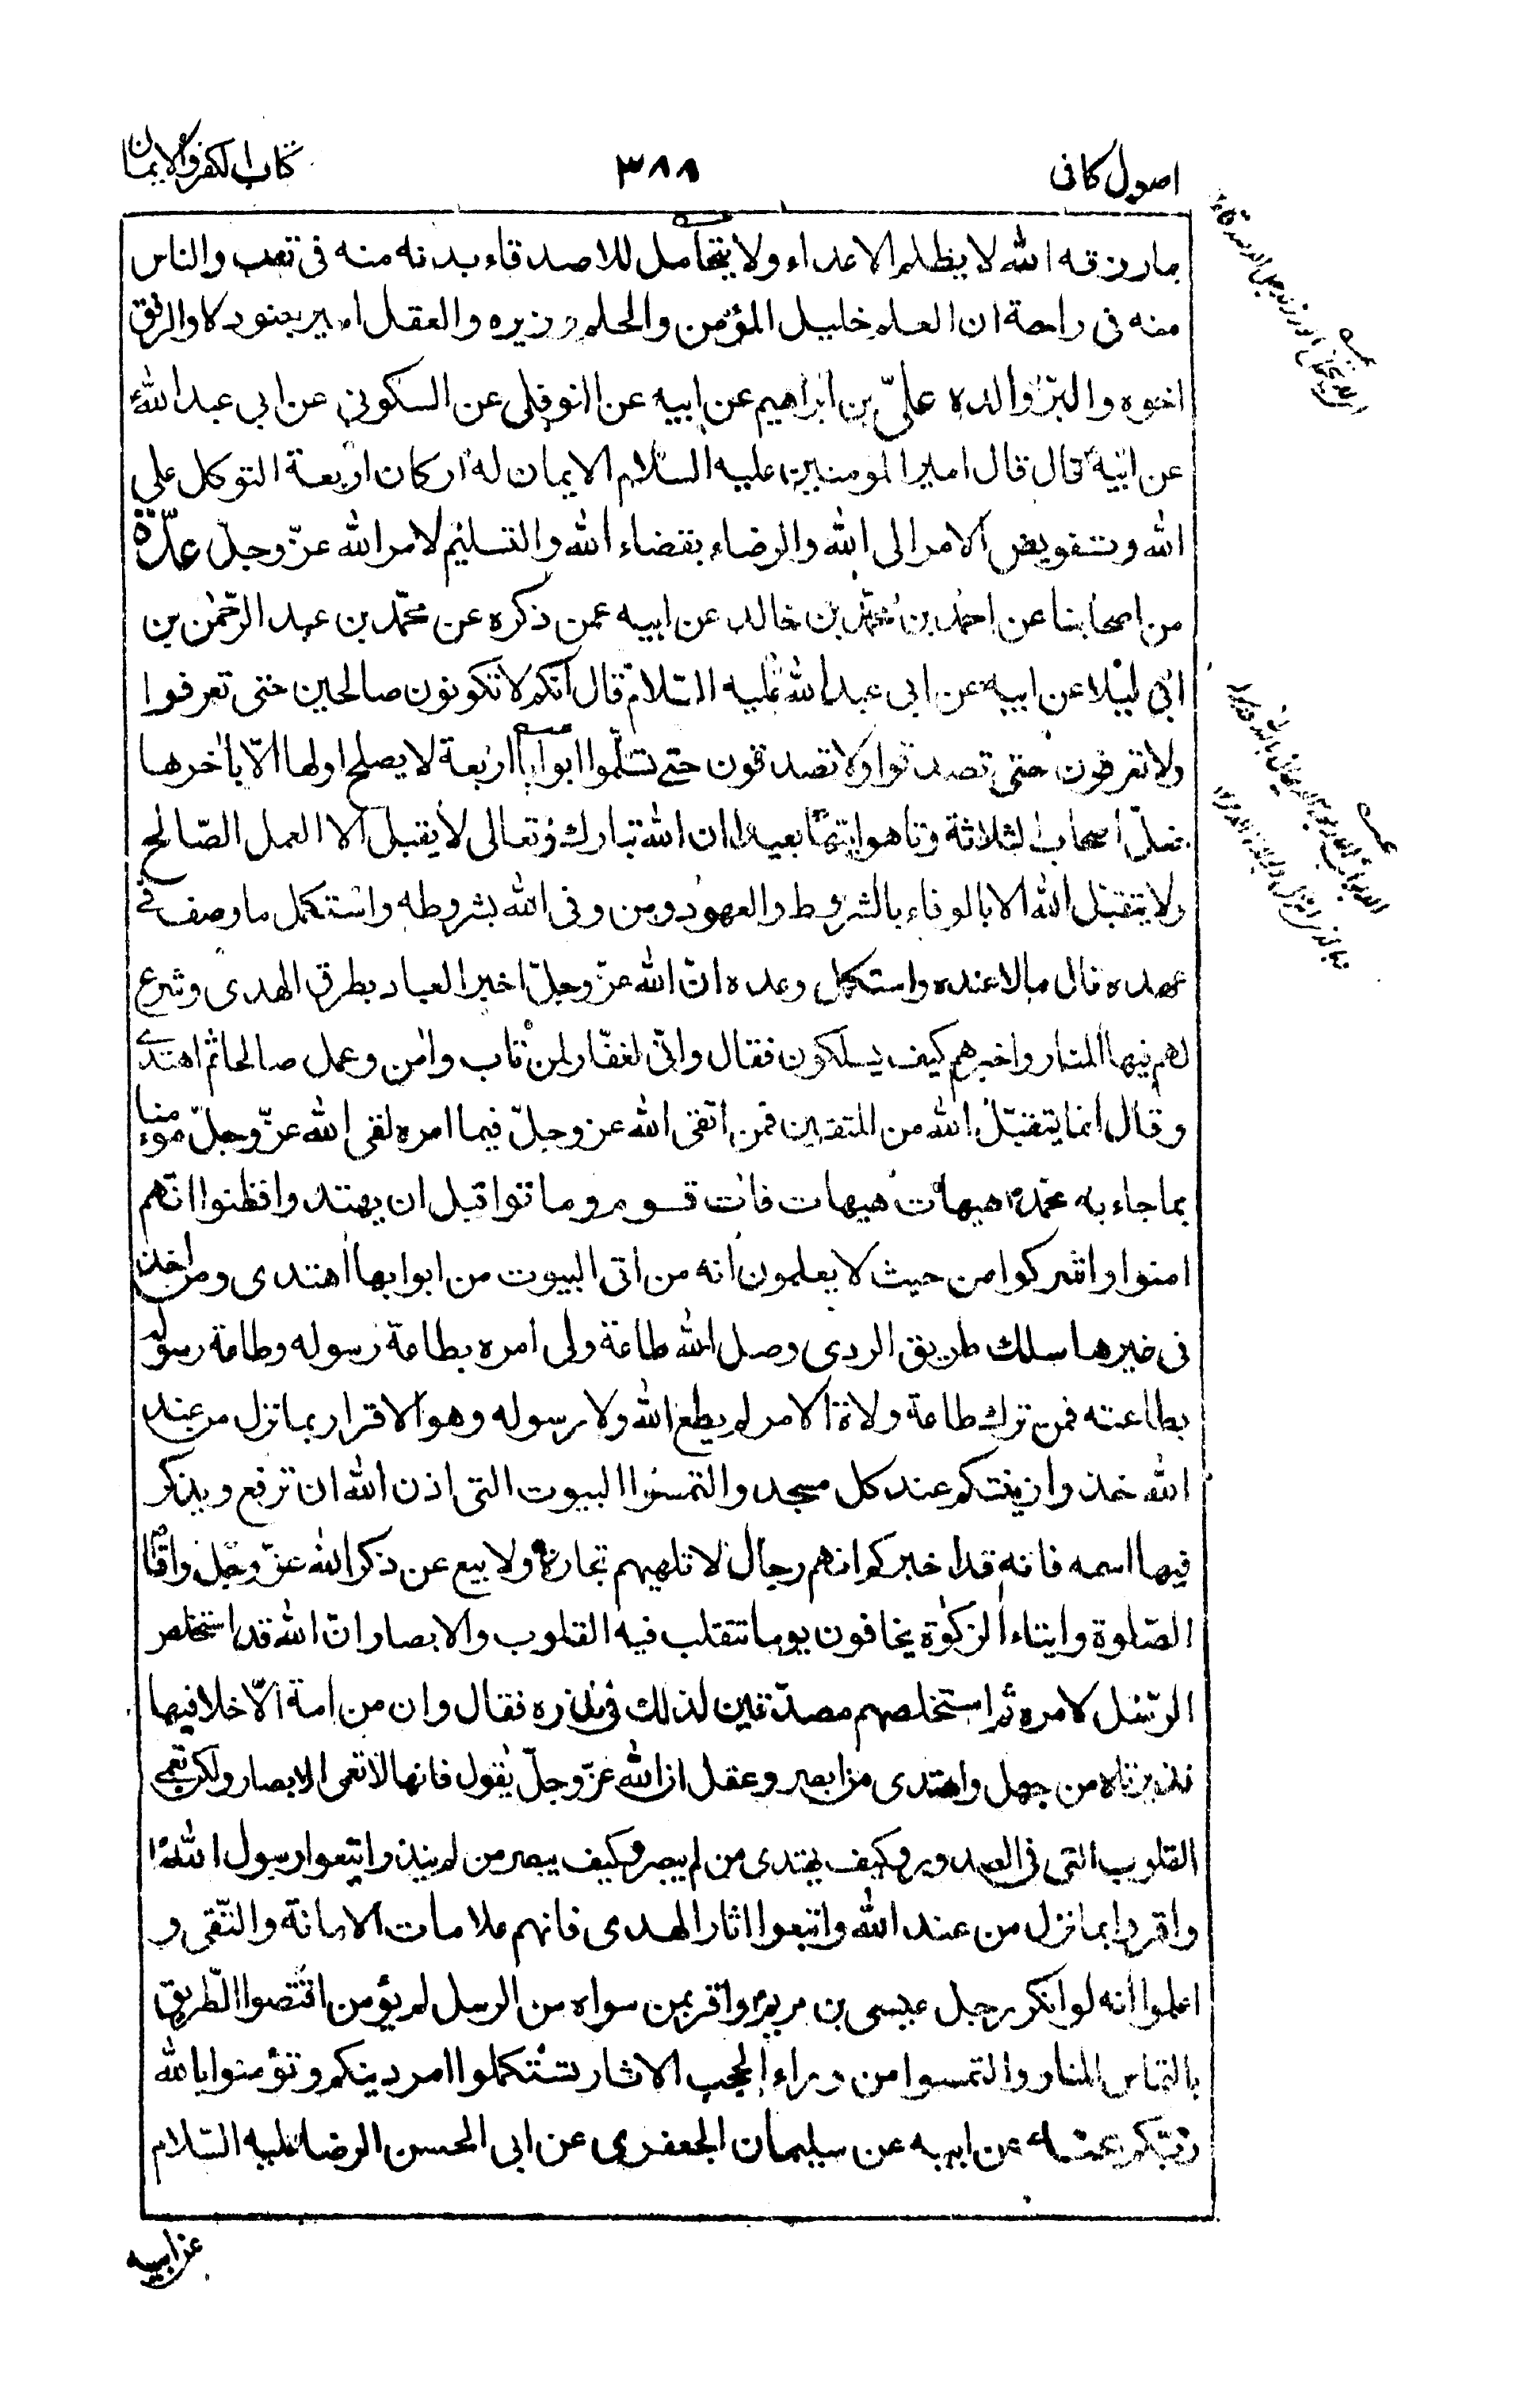 اصول كافى
٣٨٨
كتاب الكفر والايمان
بما رزقه الله لا يظلم الاعداء ولا يتحامل للاصدقاء بدنه منه فى تعب والناس
منه فى راحة ان العلم خليل المؤمن والحلم وزيره والعقل امير جنوده والرفق
اخوه والبرّ والده علىّ بن ابراهيم عن ابيه عن النوفلى عن السكونى عن ابى عبد الله ع
عن ابيه ع قال قال امير المومنين عليه السلام الايمان له اركان اربعة التوكل على
الله وتفويض الامر الى الله والرضاء بقضاء الله والتسليم لامر الله عزّ وجلّ عدّة
من اصحابنا عن احمد بن محمّد بن خالد عن ابيه عمن ذكره عن محمّد بن عبد الرّحمٰن بن
ابى ليلا عن ابيه عن ابى عبد الله عليه السّلام قال انكم لا تكونون صالحين حتى تعرفوا
ولا تعرفون حتى تصدقوا ولا تصدقون حتى تسلّموا ابوابا اربعة لا يصلح اولها الّا بآخرها
ضلّ اصحاب الثلاثة وتاهوا تيها بعيدا ان الله تبارك وتعالى لا يقبل الا العمل الصّالح
ولا يتقبل الله الا بالوفاء بالشروط والعهود ومن وفى الله بشروطه واستكمل ما وصف فى
عهده نال ما لا عنده واستكمل وعده انّ الله عزّ وجلّ اخبر العباد بطرق الهدى وشرع
لهم فيها المنار واخبرهم كيف يسلكون فقال وانّى لغفّار لمن تاب واٰمن وعمل صالحا ثم اهتدى
وقال انما يتقبّل الله من المتقين فمن اتقى الله عز وجلّ فيما امره لقى الله عزّ وجلّ مومنا
بما جاء به محمّد ص هيهات هيهات فات قوم وماتوا قبل ان يهتدوا فظنوا انهم
امنوا واشركوا من حيث لا يعلمون انه من اتى البيوت من ابوابها اهتدى ومن اخذ
فى غيرها سلك طريق الردى وصل الله طاعة ولى امره بطاعة رسوله وطاعة رسوله
بطاعته فمن ترك طاعة ولاة الامر لم يطع الله ولا رسوله وهو الاقرار بما نزل من عند
الله خذوا زينتكم عند كل مسجد والتمسوا البيوت التى اذن الله ان ترفع ويذكر
فيها اسمه فانه قد اخبركم انهم رجال لا تلهيهم تجارة ولا بيع عن ذكر الله عزّ وجلّ واقام
الصّلوة وايتاء الزكوٰة يخافون يوما تتقلب فيه القلوب والابصار انّ الله قد استخلص
الرّسل لامره ثم استخلصهم مصدّقين لذلك فى نذره فقال وان من امة الّا خلا فيها
نذير تاه من جهل واهتدى من ابصر وعقل ان الله عزّ وجلّ يقول فانها لا تعمى الابصار ولكن تعمى
القلوب التى فى الصدور وكيف يهتدى من لم يبصر وكيف يبصر من لم ينذر واتبعوا رسول الله ص
واقروا بما نزل من عند الله واتبعوا اثار الهدى فانهم علامات الامانة والتّقى و
اعلموا انه لو انكر رجل عيسى بن مريم واقر بمن سواه من الرسل لم يؤمن اقتصوا الطّريق
بالتماس المنار والتمسوا من وراء الحجب الاثار تستكملوا امر دينكم وتؤمنوا بالله
ربّكم عنه عن ابيه عن سليمان الجعفرى عن ابى الحسن الرضا عليه السّلام
عن ابيه